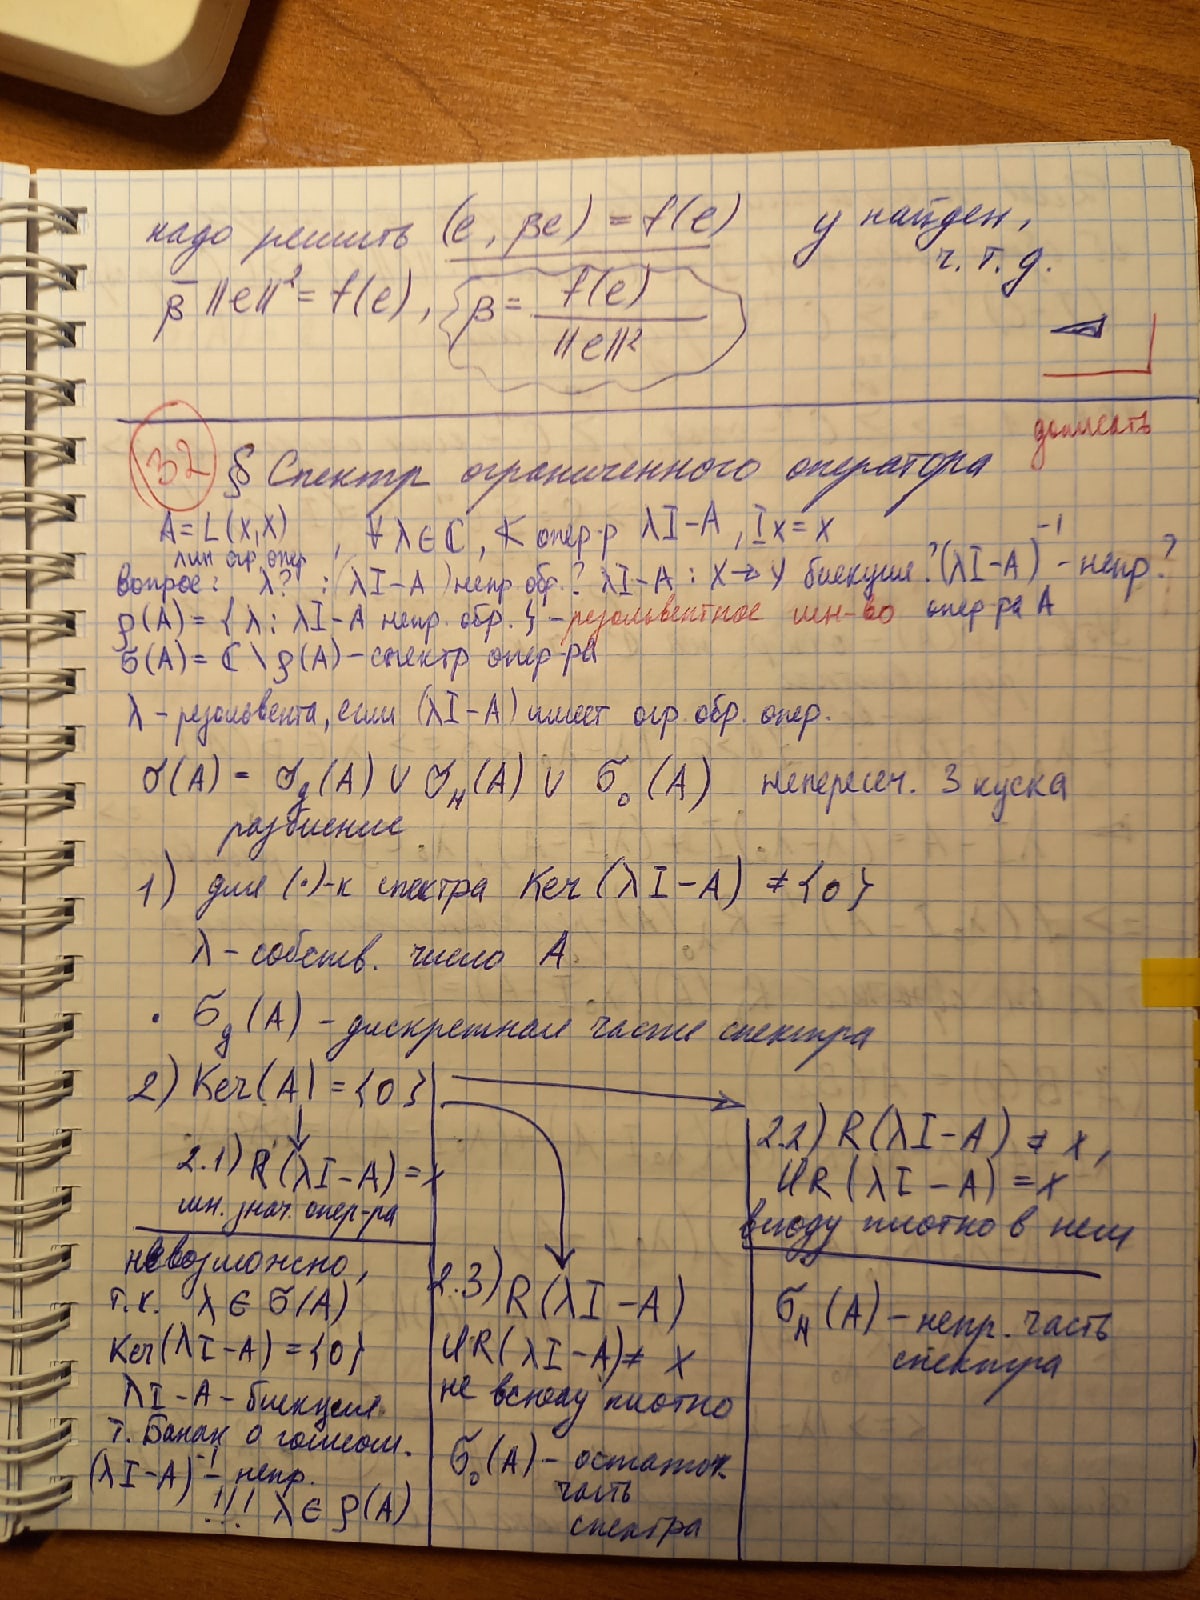 надо решить (e, βe) = f(e) y найден,
ч. т. д.
β̄ ||e||² = f(e), β = f(e) / ||e||²
дописать
32 § Спектр ограниченного оператора
A = L(X,X), ∀ λ ∈ ℂ, ∢ опер-р λI-A, Ix = x
лин. огр. опер
вопрос: λ? : (λI-A) непр. обр.? λI-A : X→Y биекция? (λI-A)⁻¹ - непр.?
ρ(A) = {λ : λI-A непр. обр.} - резольвентное мн-во опер-ра A
σ(A) = ℂ \ ρ(A) - спектр опер-ра
λ - резольвента, если (λI-A) имеет огр. обр. опер.
σ(A) = σд(A) ∪ σн(A) ∪ σо(A) непересеч. 3 куска
разбиение
1) для (·)-к спектра Ker(λI-A) ≠ {0}
λ - собств. число A
· σд(A) - дискретная часть спектра
2) Ker(A) = {0}
2.1) R(λI-A) = X
мн. знач. опер-ра
невозможно,
т.к. λ ∈ σ(A)
Ker(λI-A) = {0}
λI-A - биекция
т. Банах о гомеом.
(λI-A)⁻¹ - непр.
!!! λ ∈ ρ(A)
2.3) R(λI-A)
ClR(λI-A) ≠ X
не всюду плотно
σо(A) - остаточ.
часть
спектра
2.2) R(λI-A) ≠ X,
ClR(λI-A) = X
всюду плотно в нем
σн(A) - непр. часть
спектра